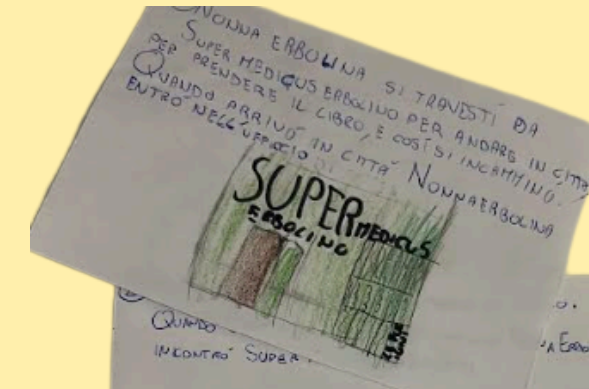 NONNA ERBOLINA SI TRAVESTÍ DA
SUPER MEDICUS ERBOLINO PER ANDARE IN CITTÀ
PER PRENDERE IL LIBRO, E COSÍ SI INCAMMINÓ.
QUANDO ARRIVÓ IN CITTÀ NONNAERBOLINA
ENTRÓ NELL'UFFICIO DI
SUPER MEDICUS
ERBOLINO
QUANDO
INCONTRÓ SUPER